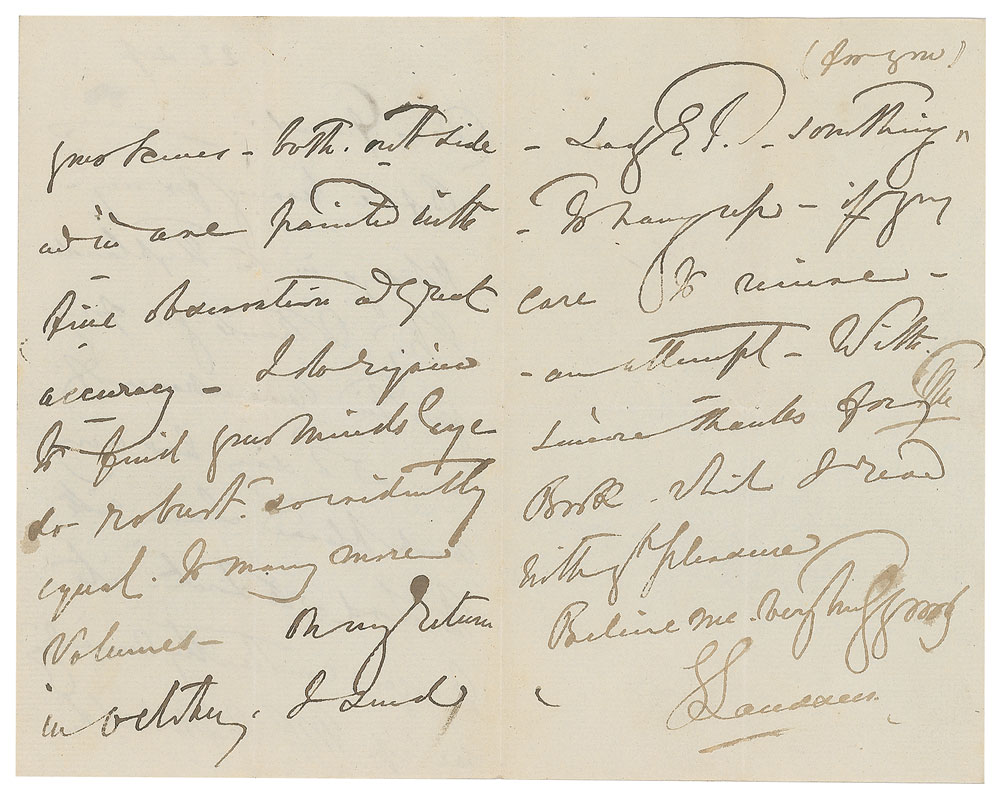 your scenes - both. out side
ad in are painted with
true observation ad great
accuracy - I do rejoice
to find your Minds Eye
so robust. so evidently
equal. to many more
Volumes - On my return
in October. I send
(for you)
- Lady E P. - something"
- to hang up - if you
care to receive -
- an attempt - With.
sincere thanks for the
Book. which I read
with gt pleasure
Believe me. very truly yours